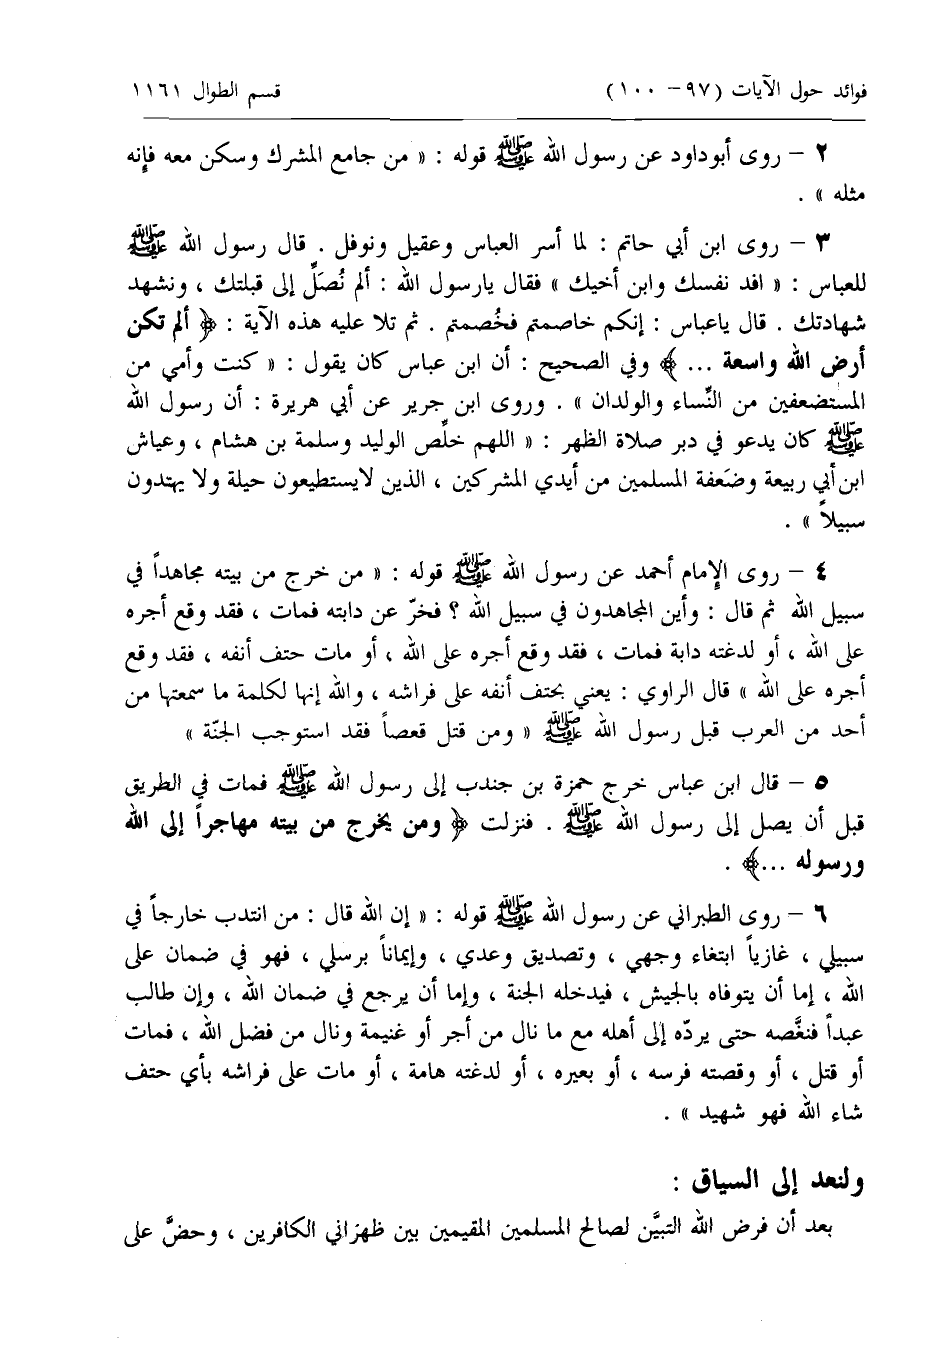 فوائد حول الآيات (٩٧ – ١٠٠) قسم الطوال ١١٦١
٢ – روى أبوداود عن رسول الله ﷺ قوله : « من جامع المشرك وسكن معه فإنه
مثله » .
٣ – روى ابن أبي حاتم : لما أسر العباس وعقيل ونوفل . قال رسول الله ﷺ
للعباس : « افد نفسك وابن أخيك » فقال يارسول الله : ألم نُصَلِّ إلى قبلتك ، ونشهد
شهادتك . قال ياعباس : إنكم خاصمتم فخُصمتم . ثم تلا عليه هذه الآية : ﴿ ألم تكن
أرض الله واسعة ... ﴾ وفي الصحيح : أن ابن عباس كان يقول : « كنت وأمي من
المستضعفين من النِّساء والولدان » . وروى ابن جرير عن أبي هريرة : أن رسول الله
ﷺ كان يدعو في دبر صلاة الظهر : « اللهم خلِّص الوليد وسلمة بن هشام ، وعياش
ابن أبي ربيعة وضَعفة المسلمين من أيدي المشركين ، الذين لايستطيعون حيلة ولا يهتدون
سبيلاً » .
٤ – روى الإمام أحمد عن رسول الله ﷺ قوله : « من خرج من بيته مجاهداً في
سبيل الله ثم قال : وأين المجاهدون في سبيل الله ؟ فخرّ عن دابته فمات ، فقد وقع أجره
على الله ، أو لدغته دابة فمات ، فقد وقع أجره على الله ، أو مات حتف أنفه ، فقد وقع
أجره على الله » قال الراوي : يعني بحتف أنفه على فراشه ، والله إنها لكلمة ما سمعتها من
أحد من العرب قبل رسول الله ﷺ « ومن قتل قعصاً فقد استوجب الجنّة »
٥ – قال ابن عباس خرج حمزة بن جندب إلى رسول الله ﷺ فمات في الطريق
قبل أن يصل إلى رسول الله ﷺ . فنزلت ﴿ ومن يخرج من بيته مهاجراً إلى الله
ورسوله ...﴾ .
٦ – روى الطبراني عن رسول الله ﷺ قوله : « إن الله قال : من انتدب خارجاً في
سبيلي ، غازياً ابتغاء وجهي ، وتصديق وعدي ، وإيماناً برسلي ، فهو في ضمان على
الله ، إما أن يتوفاه بالجيش ، فيدخله الجنة ، وإما أن يرجع في ضمان الله ، وإن طالب
عبداً فنغَّصه حتى يردّه إلى أهله مع ما نال من أجر أو غنيمة ونال من فضل الله ، فمات
أو قتل ، أو وقصته فرسه ، أو بعيره ، أو لدغته هامة ، أو مات على فراشه بأي حتف
شاء الله فهو شهيد » .
ولنعد إلى السياق :
بعد أن فرض الله التبيَّن لصالح المسلمين المقيمين بين ظهراني الكافرين ، وحضَّ على